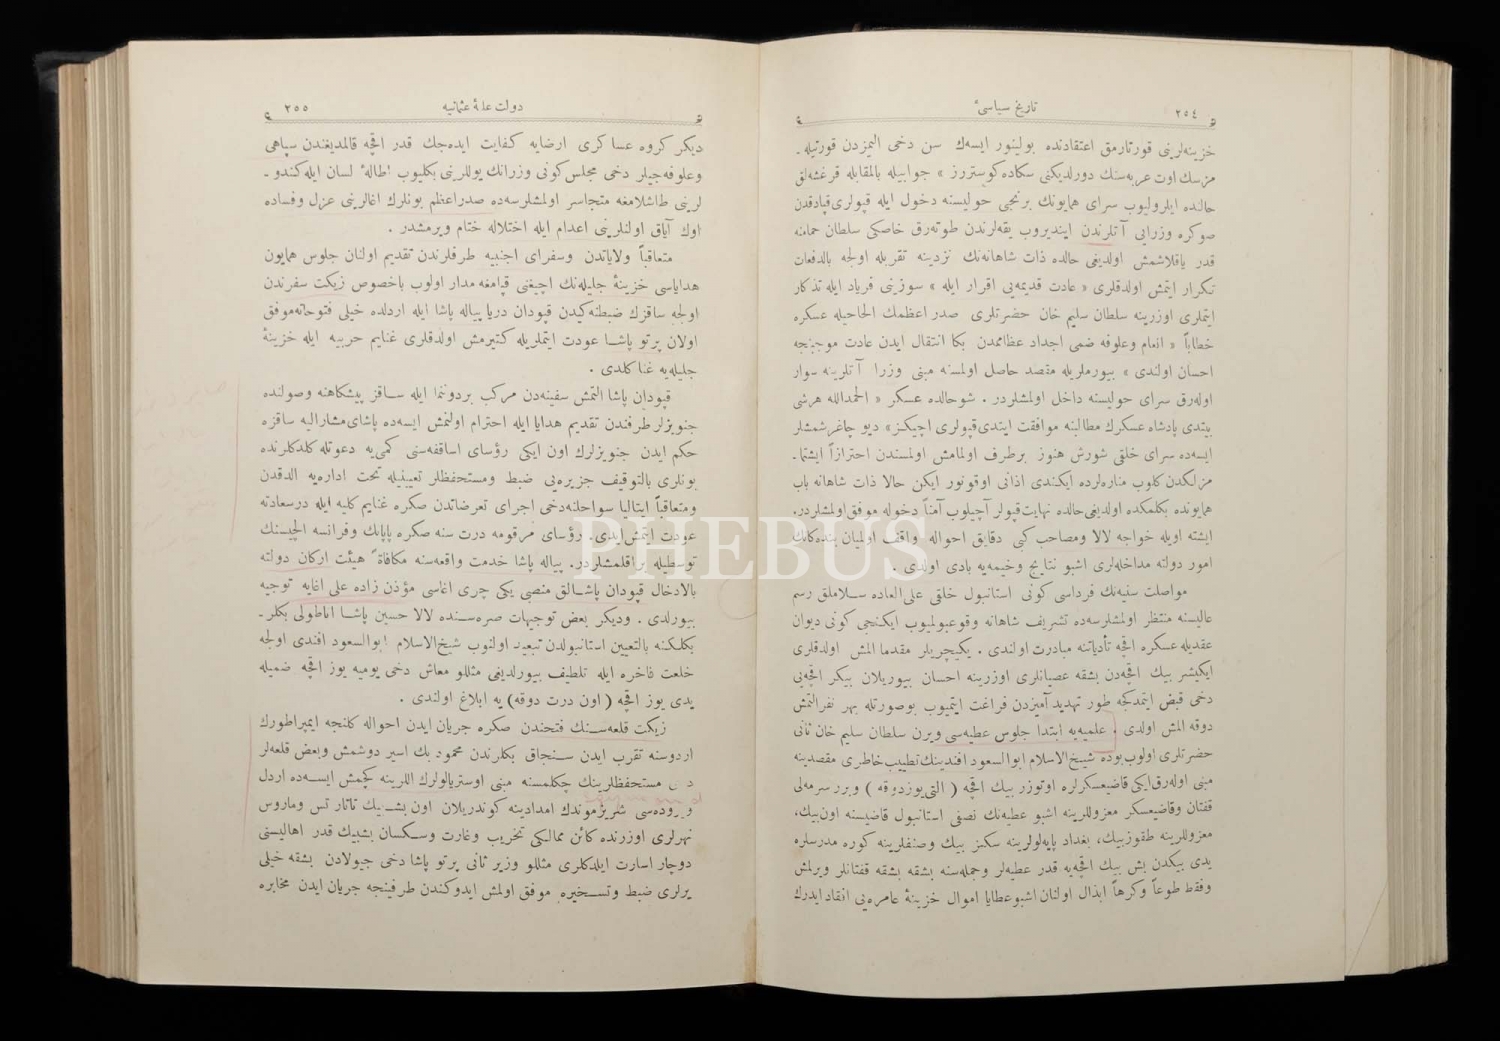 ٢٥٤ تاريخ سياسىٔ
خزينه‌لرينى قورتارمق اعتقادنده بولينور ايسه‌ك سن دخى اليمزدن قورتيله‌ـ
مزسك اوت عربه‌سنك دورلديكنى سكاده كوستررز » جوابيله بالمقابله قرغشه‌لق
حالنده ايلروليوب سراى همايونك برنجى حوليسنه دخول ايله قپولرى قپادقدن
صوكره وزرايى آتلرندن اينديروب يقه‌لرندن طوته‌رق خاصكى سلطان حمامنه
قدر ياقلاشمش اولديغى حالده ذات شاهانه‌نك نزدينه تقربله اولجه بالدفعات
تكرار ايتمش اولدقلرى « عادت قديمه‌يى اقرار ايله » سوزينى فرياد ايله تذكار
ايتملرى اوزرينه سلطان سليم خان حضرتلرى صدر اعظمك الحاحيله عسكره
خطاباً « انعام وعلوفه ضمى اجداد عظاممدن بكا انتقال ايدن عادت موجبنجه
احسان اولندى » بيورملريله مقصد حاصل اولمسنه مبنى وزرا آتلرينه سوار
اوله‌رق سراى حوليسنه داخل اولمشلردر . شوحالده عسكر « الحمدالله هرشى
بيتدى پادشاه عسكرك مطالبنه موافقت ايتدى قپولرى اچيكز » ديو چاغرشمشلر
ايسه‌ده سراى خلقى شورش هنوز برطرف اولمامش اولمسندن احترازاً ايشتمـ
مزلكدن كلوب مناره‌لرده ايكندى اذانى اوقونور ايكن حالا ذات شاهانه باب
همايونده بكلمكده اولديغى حالده نهايت قپولر آچيلوب آمناً دخوله موفق اولمشلردر.
ايشته اويله خواجه لالا ومصاحب كبى دقايق احواله واقف اولميان بنده‌كانك
امور دولته مداخله‌لرى اشبو نتايج وخيمه‌يه بادى اولدى .
مواصلت سنيه‌نك فرداسى كونى استانبول خلقى على‌العاده سلاملق رسم
عاليسنه منتظر اولمشلرسه‌ده تشريف شاهانه وقوعبولميوب ايكنجى كونى ديوان
عقديله عسكره اقچه تأدياتنه مبادرت اولندى . يكيچريلر مقدما المش اولدقلرى
ايكيشر بيك اقچه‌دن بشقه عصيانلرى اوزرينه احسان بيوريلان بيكر اقچه‌يى
دخى قبض ايتمدكجه طور تهديد آميزدن فراغت ايتميوب بوصورتله بهر نفر التمش
دوقه المش اولدى . علميه‌يه ابتدا جلوس عطيه‌سى ويرن سلطان سليم خان ثانى
حضرتلرى اولوب بوده شيخ‌الاسلام ابوالسعود افندينك تطييب خاطرى مقصدينه
مبنى اوله‌رق ايكى قاضيعسكرلره اوتوزر بيك اقچه ( التى يوز دوقه ) وبرر سرمه‌لى
قفتان وقاضيعسكر معزوللرينه اشبو عطيه‌نك نصفى استانبول قاضيسنه اون بيك،
معزوللرينه طقوز بيك، بغداد پايه‌لولرينه سكز بيك وصنفلرينه كوره مدرسلره
يدى بيكدن بش بيك اقچه‌يه قدر عطيه‌لر وجمله‌سنه بشقه بشقه قفتانلر ويرلمش
وفقط طوعاً وكرهاً ابذال اولنان اشبو عطايا اموال خزينهٔ عامره‌يى انفاد ايدرك
دولت عليهٔ عثمانيه ٢٥٥
ديكر كروه عساكرى ارضايه كفايت ايده‌جك قدر اقچه قالمديغندن سپاهى
وعلوفه‌جيلر دخى مجلس كونى وزرانك يوللرينى بكليوب اطالهٔ لسان ايله كندوـ
لرينى طاشلامغه متجاسر اولمشلرسه‌ده صدراعظم بونلرك اغالرينى عزل وفساده
اوك آياق اولنلرينى اعدام ايله اختلاله ختام ويرمشدر .
متعاقباً ولاياتدن وسفراى اجنبيه طرفلرندن تقديم اولنان جلوس همايون
هداياسى خزينهٔ جليله‌نك اچيغنى قپامغه مدار اولوب باخصوص زيكت سفرندن
اولجه ساقزك ضبطنه كيدن قپودان دريا پياله پاشا ايله اردلده خيلى فتوحاته موفق
اولان پرتو پاشا عودت ايتملريله كتيرمش اولدقلرى غنايم حربيه ايله خزينهٔ
جليله‌يه غنا كلدى .
قپودان پاشا التمش سفينه‌دن مركب بردوننما ايله ساقز پيشكاهنه وصولنده
جنويزلر طرفندن تقديم هدايا ايله احترام اولنمش ايسه‌ده پاشاى مشاراليه ساقزه
حكم ايدن جنويزلرك اون ايكى رؤساى اساقفه‌سنى كمى‌يه دعوتله كلدكلرنده
بونلرى بالتوقيف جزيره‌يى ضبط ومستحفظلر تعيينيله تحت اداره‌يه الدقدن
ومتعاقباً ايتاليا سواحلنه‌دخى اجراى تعرضاتدن صكره غنايم كليه ايله درسعادته
عودت ايتمش ايدى. رؤساى مرقومه درت سنه صكره پاپانك وفرانسه الچيسنك
توسطيله براقلمشلردر. پياله پاشا خدمت واقعه‌سنه مكافاةً هيئت اركان دولته
بالادخال قپودان پاشالق منصبى يكى چرى اغاسى مؤذن زاده على اغايه توجيه
بيورلدى . وديكر بعض توجيهات صره‌سنده لالا حسين پاشا اناطولى بكلرـ
بكلكنه بالتعيين استانبولدن تبعيد اولنوب شيخ‌الاسلام ابوالسعود افندى اولجه
خلعت فاخره ايله تلطيف بيورلديغى مثللو معاش دخى يوميه يوز اقچه ضميله
يدى يوز اقچه ( اون درت دوقه ) يه ابلاغ اولندى .
زيكت قلعه‌سنك فتحندن صكره جريان ايدن احواله كلنجه ايمپراطورك
اردوسنه تقرب ايدن سنجاق بكلرندن محمود بك اسير دوشمش وبعض قلعه‌لر
مستحفظلرينك چكلمسنه مبنى اوستريالولرك اللرينه كچمش ايسه‌ده اردل
شزيژموندك امدادينه كوندريلان اون بش بيك تاتار تس وماروس
نهرلرى اوزرنده كائن ممالكى تخريب وغارت وسكسان بشبيك قدر اهاليسنى
دوچار اسارت ايلدكلرى مثللو وزير ثانى پرتو پاشا دخى جيولادن بشقه خيلى
يرلرى ضبط وتسخيره موفق اولمش ايدوكندن طرفينجه جريان ايدن مخابره
PHEBUS